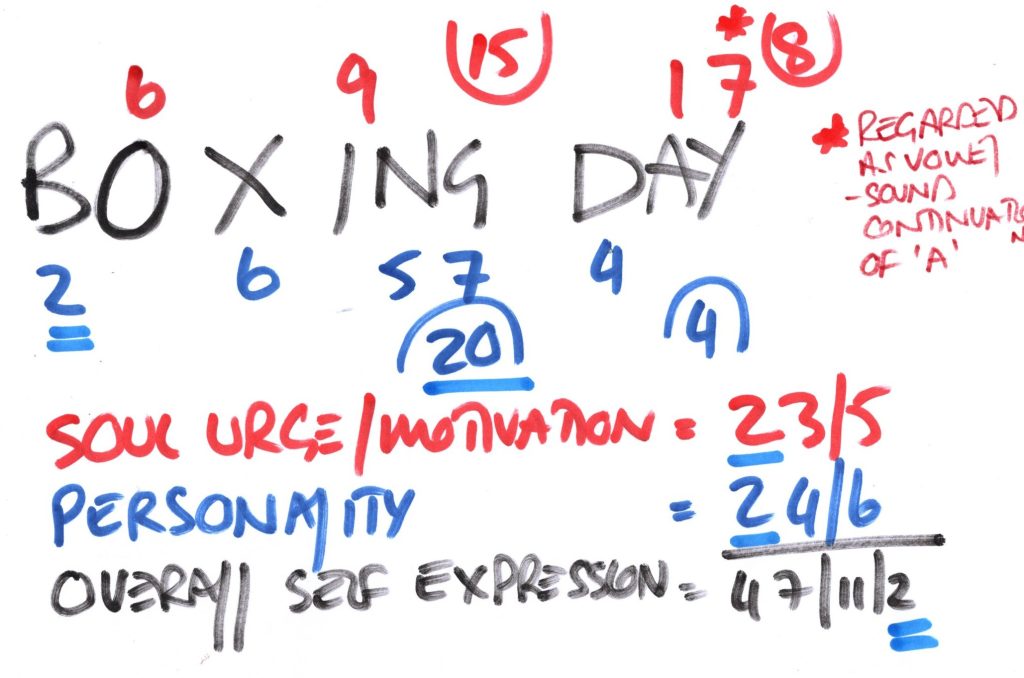 * 8
6 9 15 1 7
BOXING DAY
* REGARDED
AS VOWEL
- SOUND
CONTINUATION
OF 'A'
2 6 5 7 4
20 4
SOUL URGE/MOTIVATION = 23/5
PERSONALITY = 24/6
OVERALL SELF EXPRESSION = 47/11/2